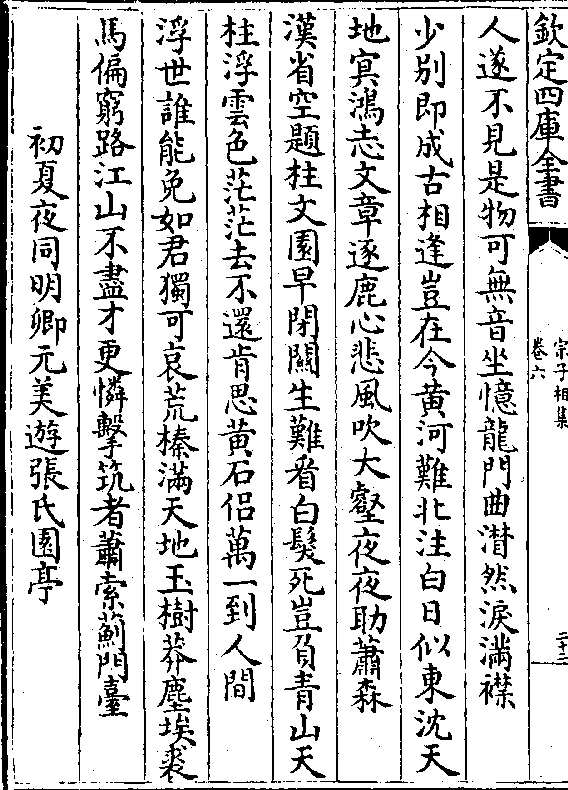 欽定四庫全書
宗子相集
卷六
二十二
人遂不見是物可無音坐憶龍門曲潸然淚滿襟
少别即成古相逢豈在今黄河難北注白日似東沈天
地㝠鴻志文章逐鹿心悲風吹大壑夜夜助蕭森
漢省空題柱文園早閉關生難㸔白髪死豈負青山天
柱浮雲色茫茫去不還肯思黄石侣萬一到人間
浮世誰能免如君獨可哀荒榛滿天地玉樹莽塵埃裘
馬偏窮路江山不盡才更憐擊筑者蕭索薊門臺
初夏夜同明卿元美遊張氏園亭